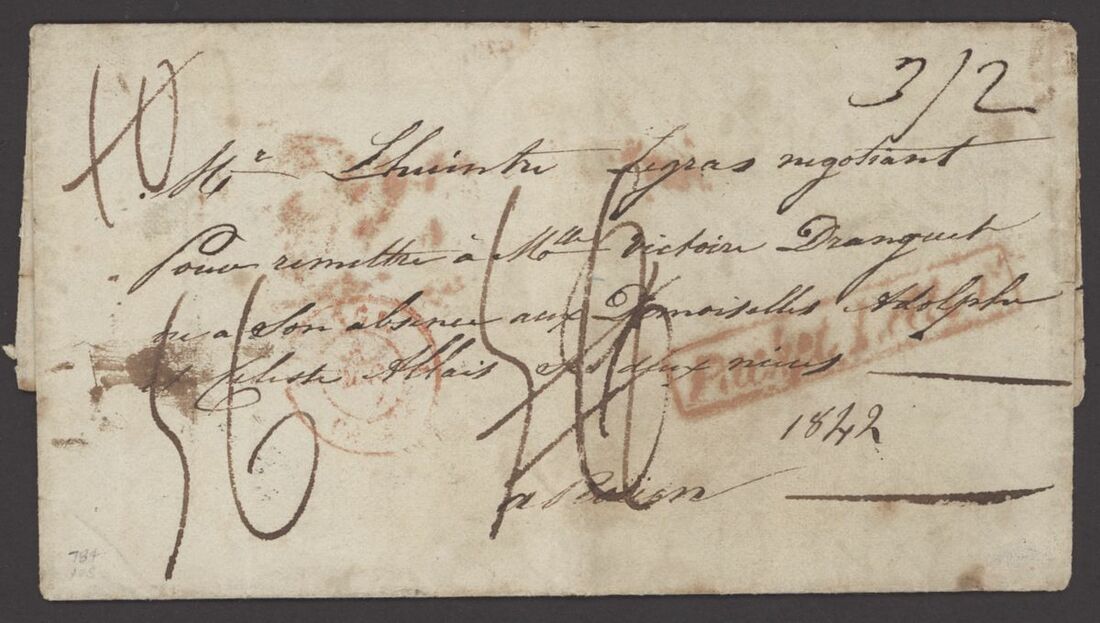 10
3/2
Mr Lhuintre Legras negotiant
Pour remettre à Mlle victoire Dranguet
ou a Son absence aux Dmoiselles Adolphe
et Celeste Allais Ses deux nieces
Packet Letter
56
1842
a Rouen
784